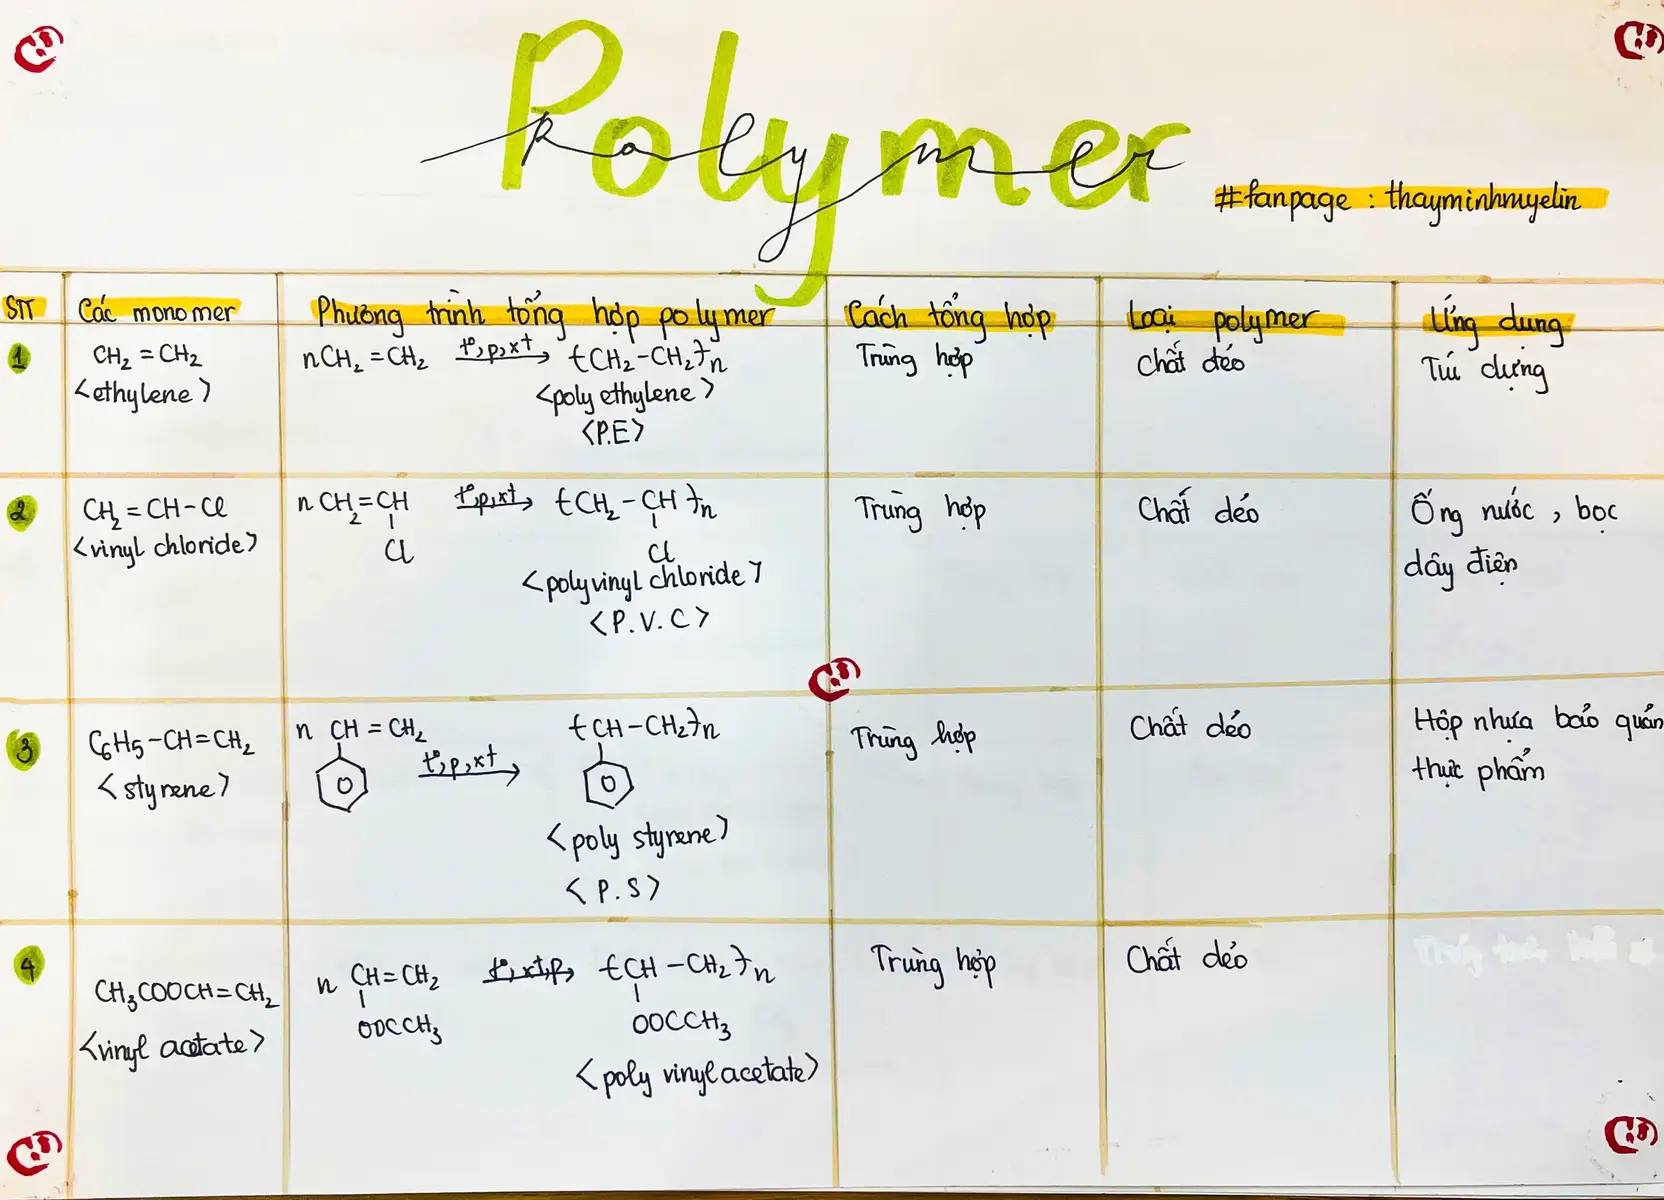 Polymer
polymer
#fanpage : thayminhmyelin
STT
Các monomer
Phương trình tổng hợp polymer
Cách tổng hợp
Loại polymer
Ứng dụng
1
CH₂ = CH₂
<ethylene>
nCH₂ = CH₂ t°,p,xt → (CH₂-CH₂)n
<poly ethylene>
<P.E>
Trùng hợp
Chất dẻo
Túi dựng
2
CH₂ = CH-Cl
<vinyl chloride>
n CH₂=CH t°,p,xt → (CH₂ - CH)n
Cl Cl
<polyvinyl chloride>
<P.V.C>
Trùng hợp
Chất dẻo
Ống nước , bọc
dây điện
3
C₆H₅-CH=CH₂
<styrene>
n CH = CH₂ t°,p,xt → (CH-CH₂)n
<poly styrene>
<P.S>
Trùng hợp
Chất dẻo
Hộp nhựa bảo quản
thực phẩm
4
CH₃COOCH=CH₂
<vinyl acetate>
n CH=CH₂ t°,xt,p → (CH -CH₂)n
OOCCH₃ OOCCH₃
<poly vinyl acetate>
Trùng hợp
Chất dẻo